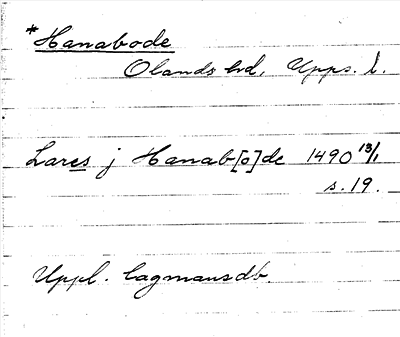 *Hanabode
Olands hd, Upps. l.
Lares j Hanab[o]de 1490 13/1
s. 19.
Uppl. lagmansdb.